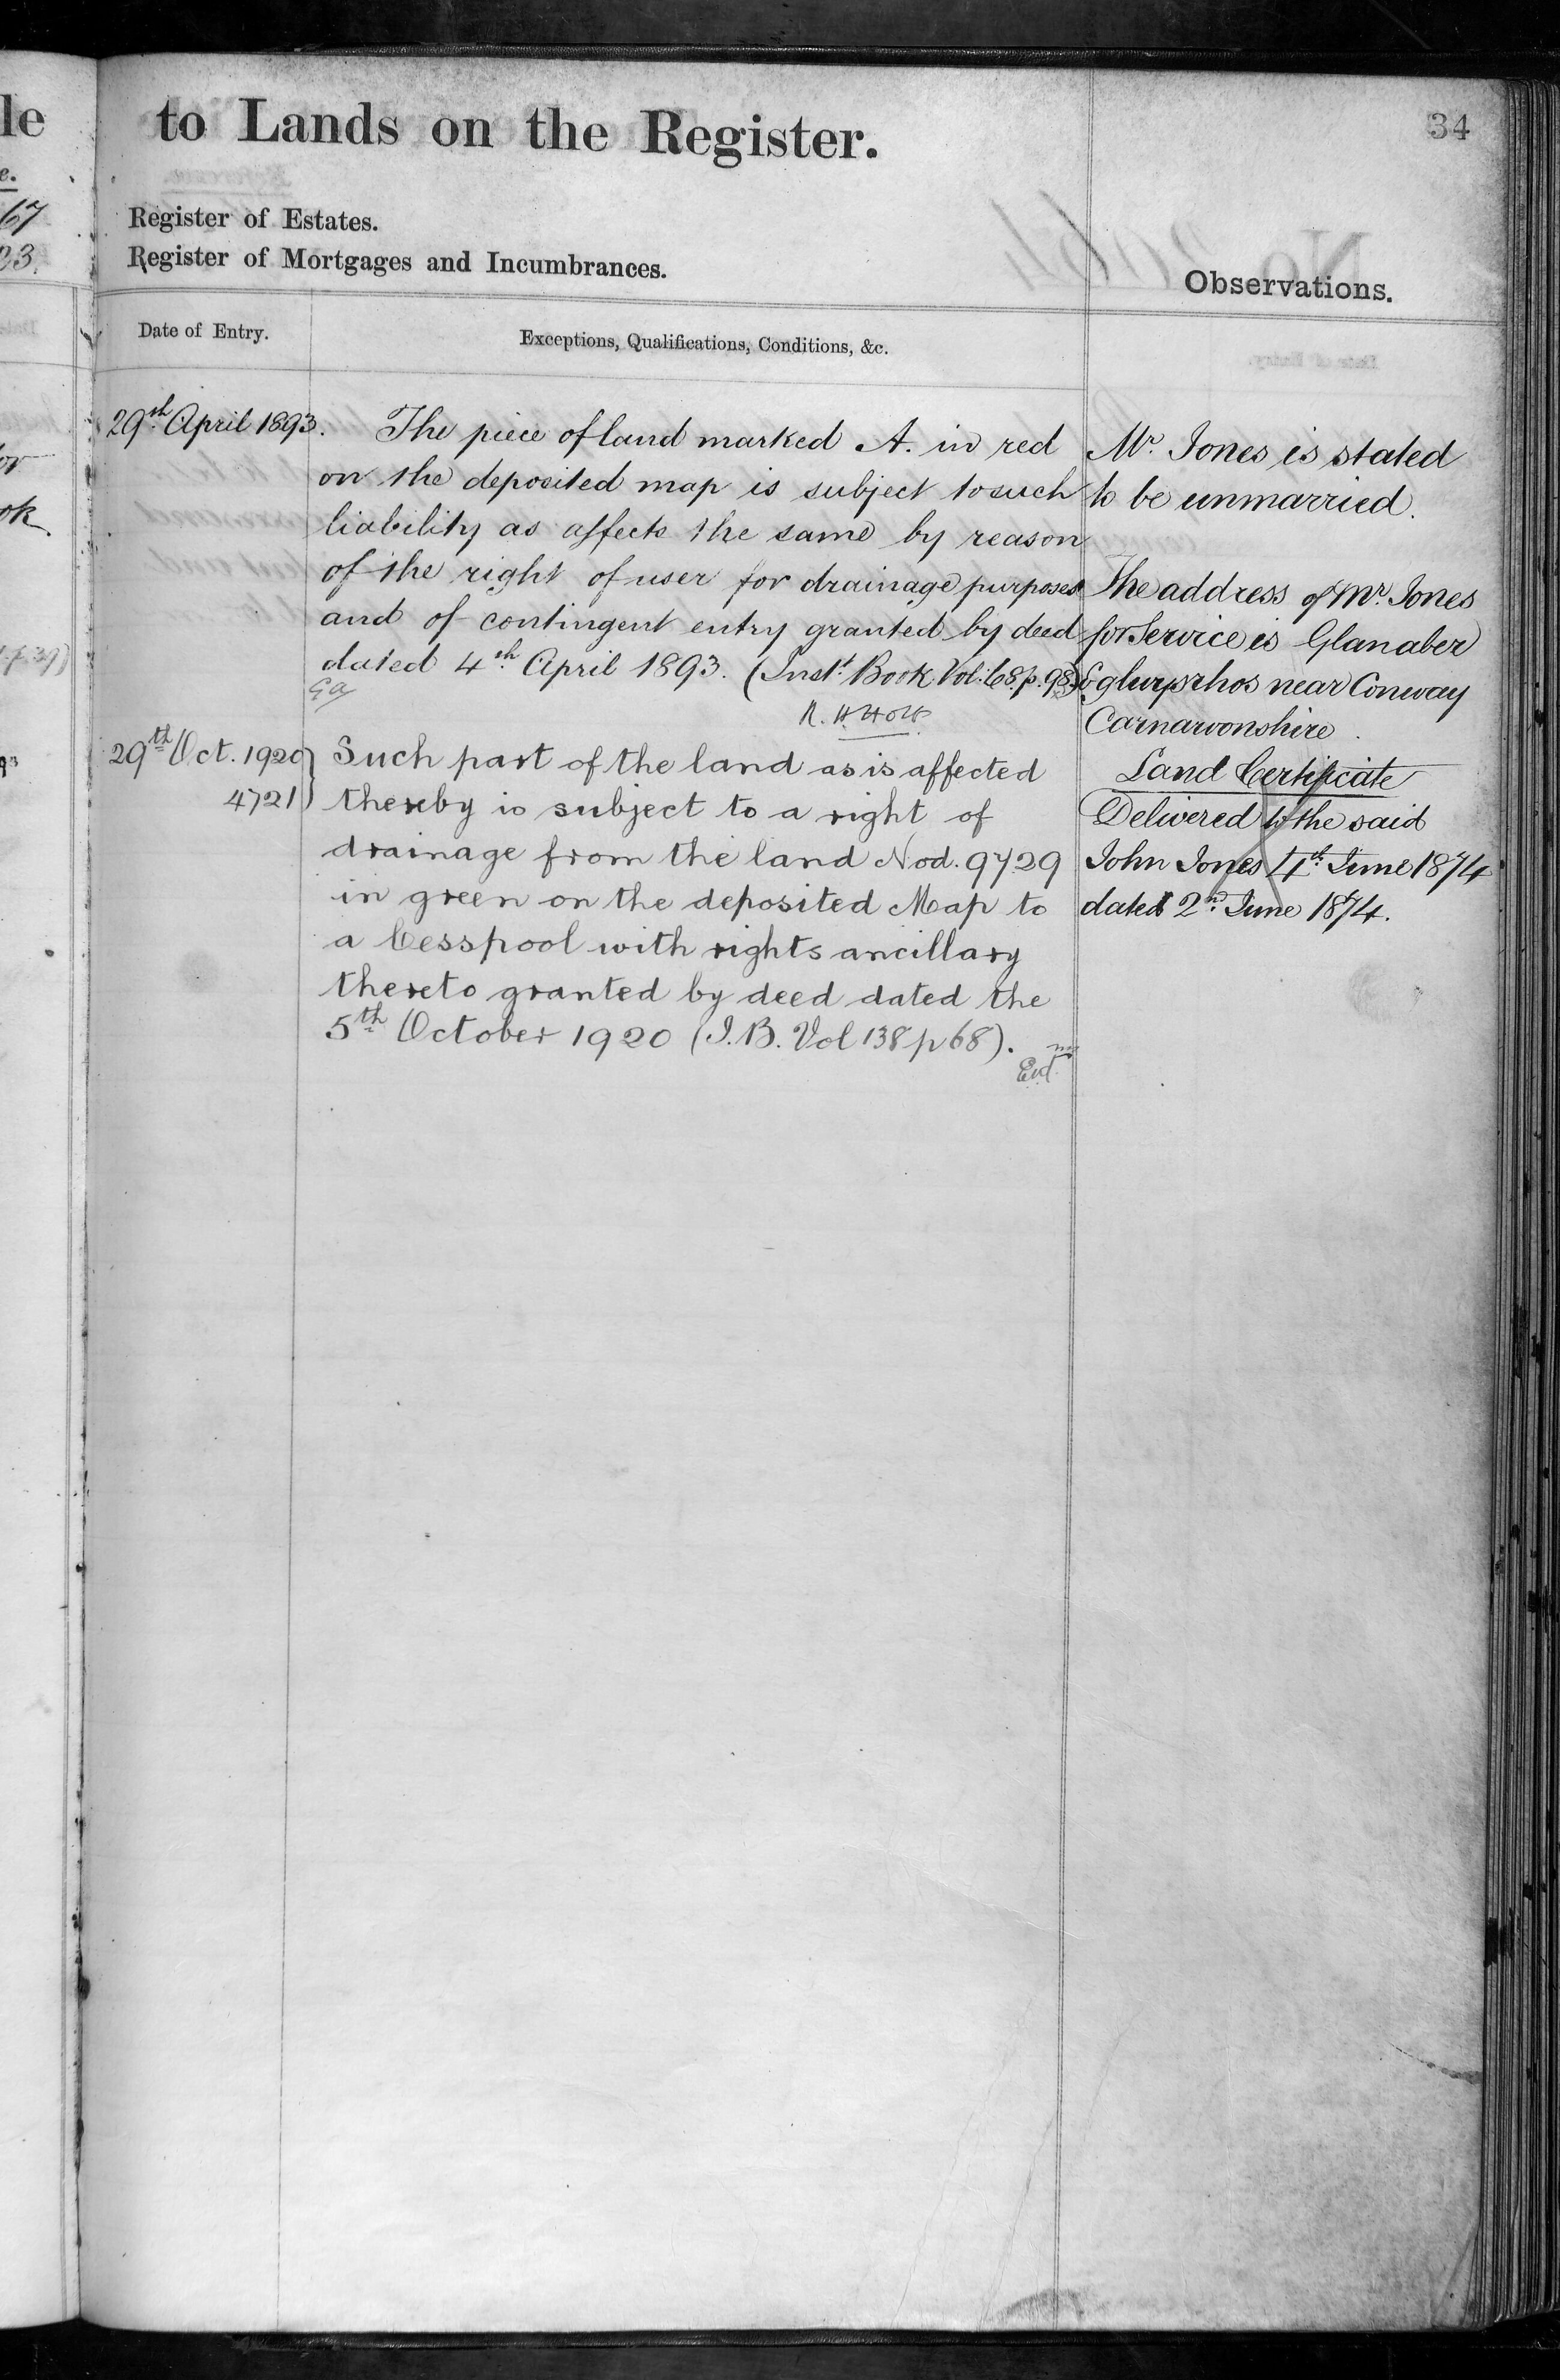 le
to Lands on the Register.
34
e.
67
93.
Register of Estates.
Register of Mortgages and Incumbrances.
Observations.
Date of Entry.
Exceptions, Qualifications, Conditions, &c.
29th April 1893.
The piece of land marked A. in red
on the deposited map is subject to such
liability as affects the same by reason
of the right of user for drainage purposes
and of contingent entry granted by deed
dated 4th April 1893. (Inst. Book. Vol. 68. p. 98)
R. H. Holt
29th Oct. 1920
4721
Such part of the land as is affected
thereby is subject to a right of
drainage from the land Nod. 9729
in green on the deposited Map to
a Cesspool with rights ancillary
thereto granted by deed dated the
5th October 1920 (I.B. Vol 138 p 68).
Mr. Jones is stated
to be unmarried.
The address of Mr. Jones
for Service is Glanaber
Eglwysrhos near Conway
Carnarvonshire.
Land Certificate
Delivered to the said
John Jones 4th June 1874
dated 2nd June 1874.